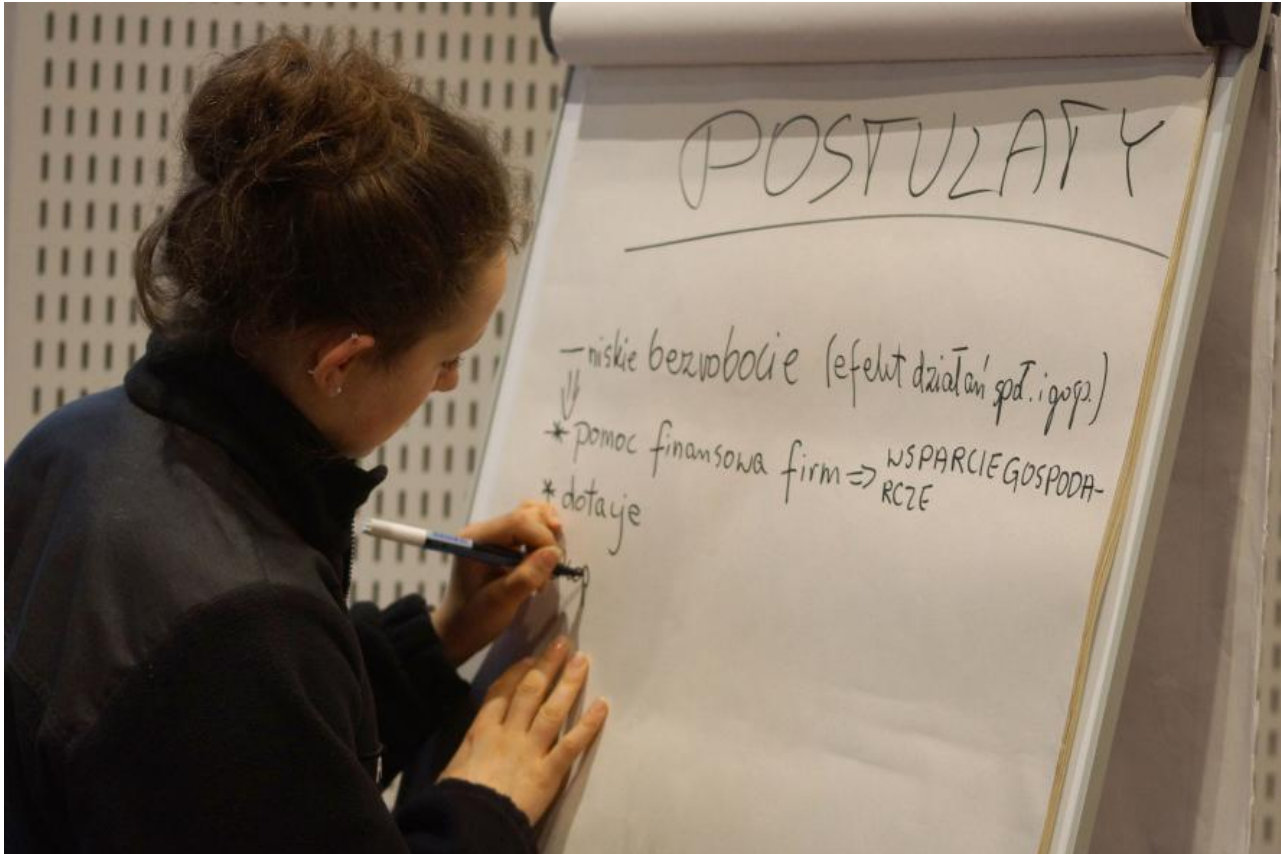 POSTULATY
– niskie bezrobocie (efekt działań społ. i gosp.)
* pomoc finansowa firm => WSPARCIE GOSPODA-
RCZE
* dotacje